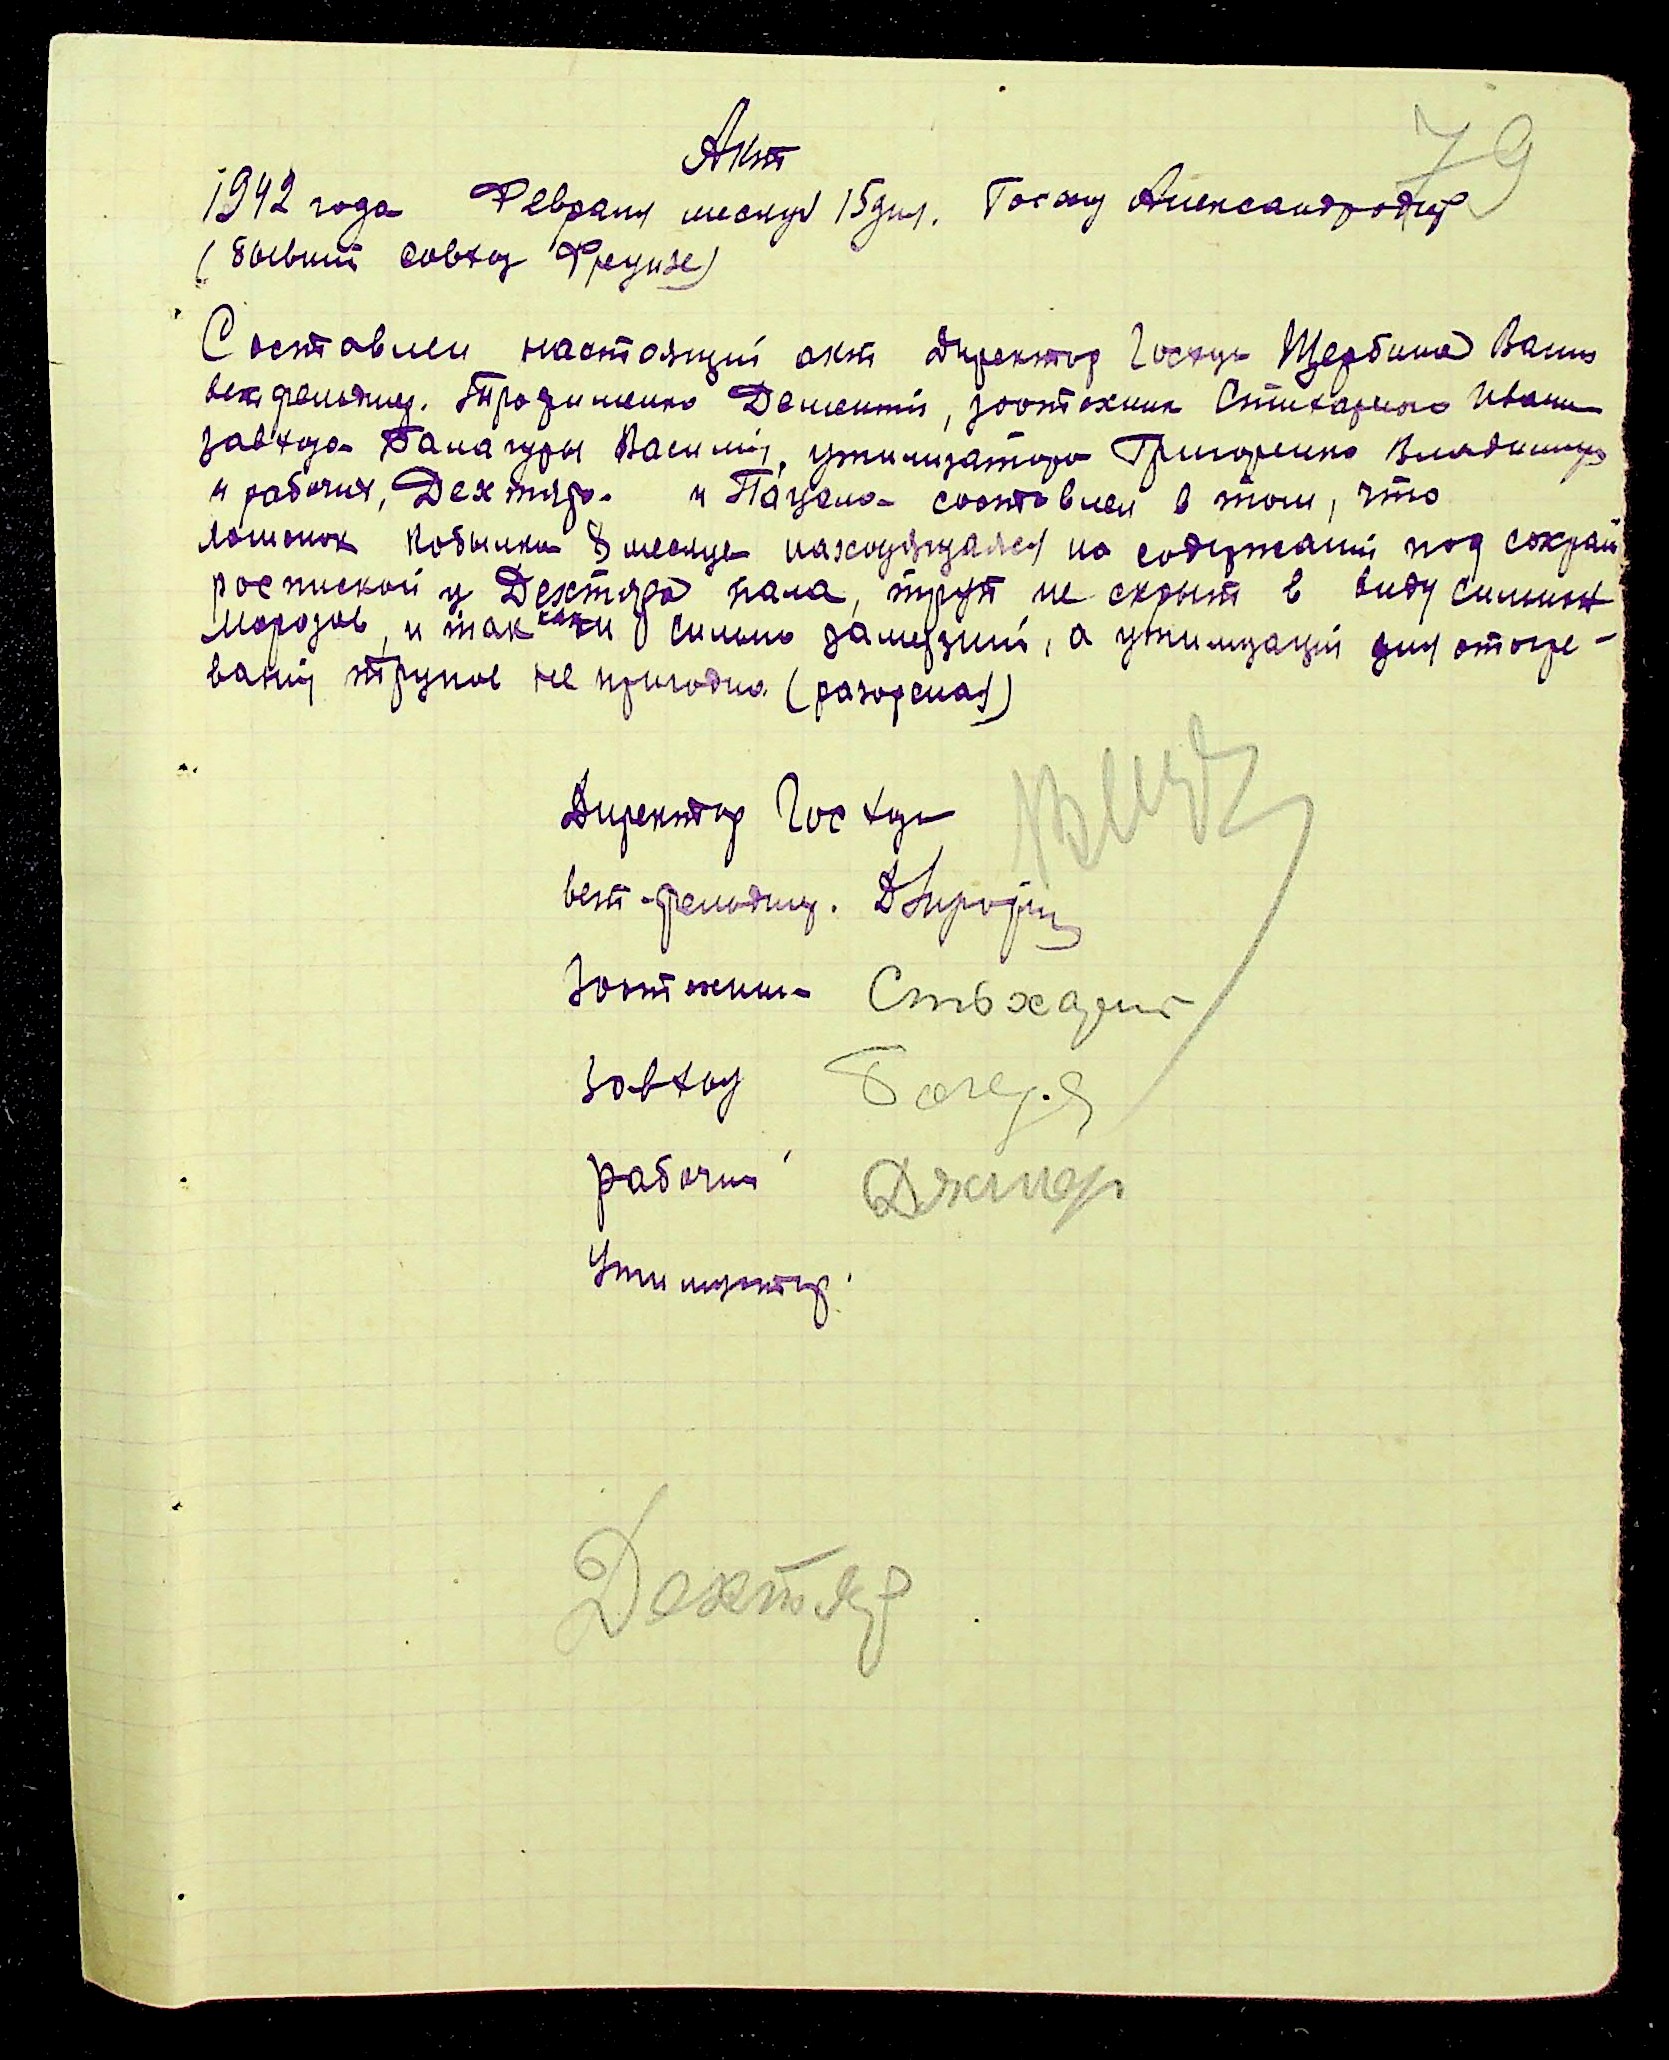 79
Акт
1942 года Февраля месяца 15 дня. Госхоз Александродар
(бывший совхоз Фрунзе)
Составлен настоящий акт директор Госхоза Щербина
ветфельдшер. Трофименко Дементий, зоотехник Стихарного Ивана
завхоза Балагуры Василия, утилизатора Григоренко Владимира
и рабочих, Дехтяра и Пацела составлен в том, что
лошонок кобылка 8 месяца находящаяся на содержании под сохран
роспиской у Дехтяра пала, труп не скрыт в виду сильных
морозов, и так как и сильно замерзший, а утилизаций для отогре-
ваний трупов не пригодна (разореная)
Директор Госхоза
вет-фельдшер. ДТроф
Зоотехник
завхоз
рабочий
Утилизатор.
Дехтяр